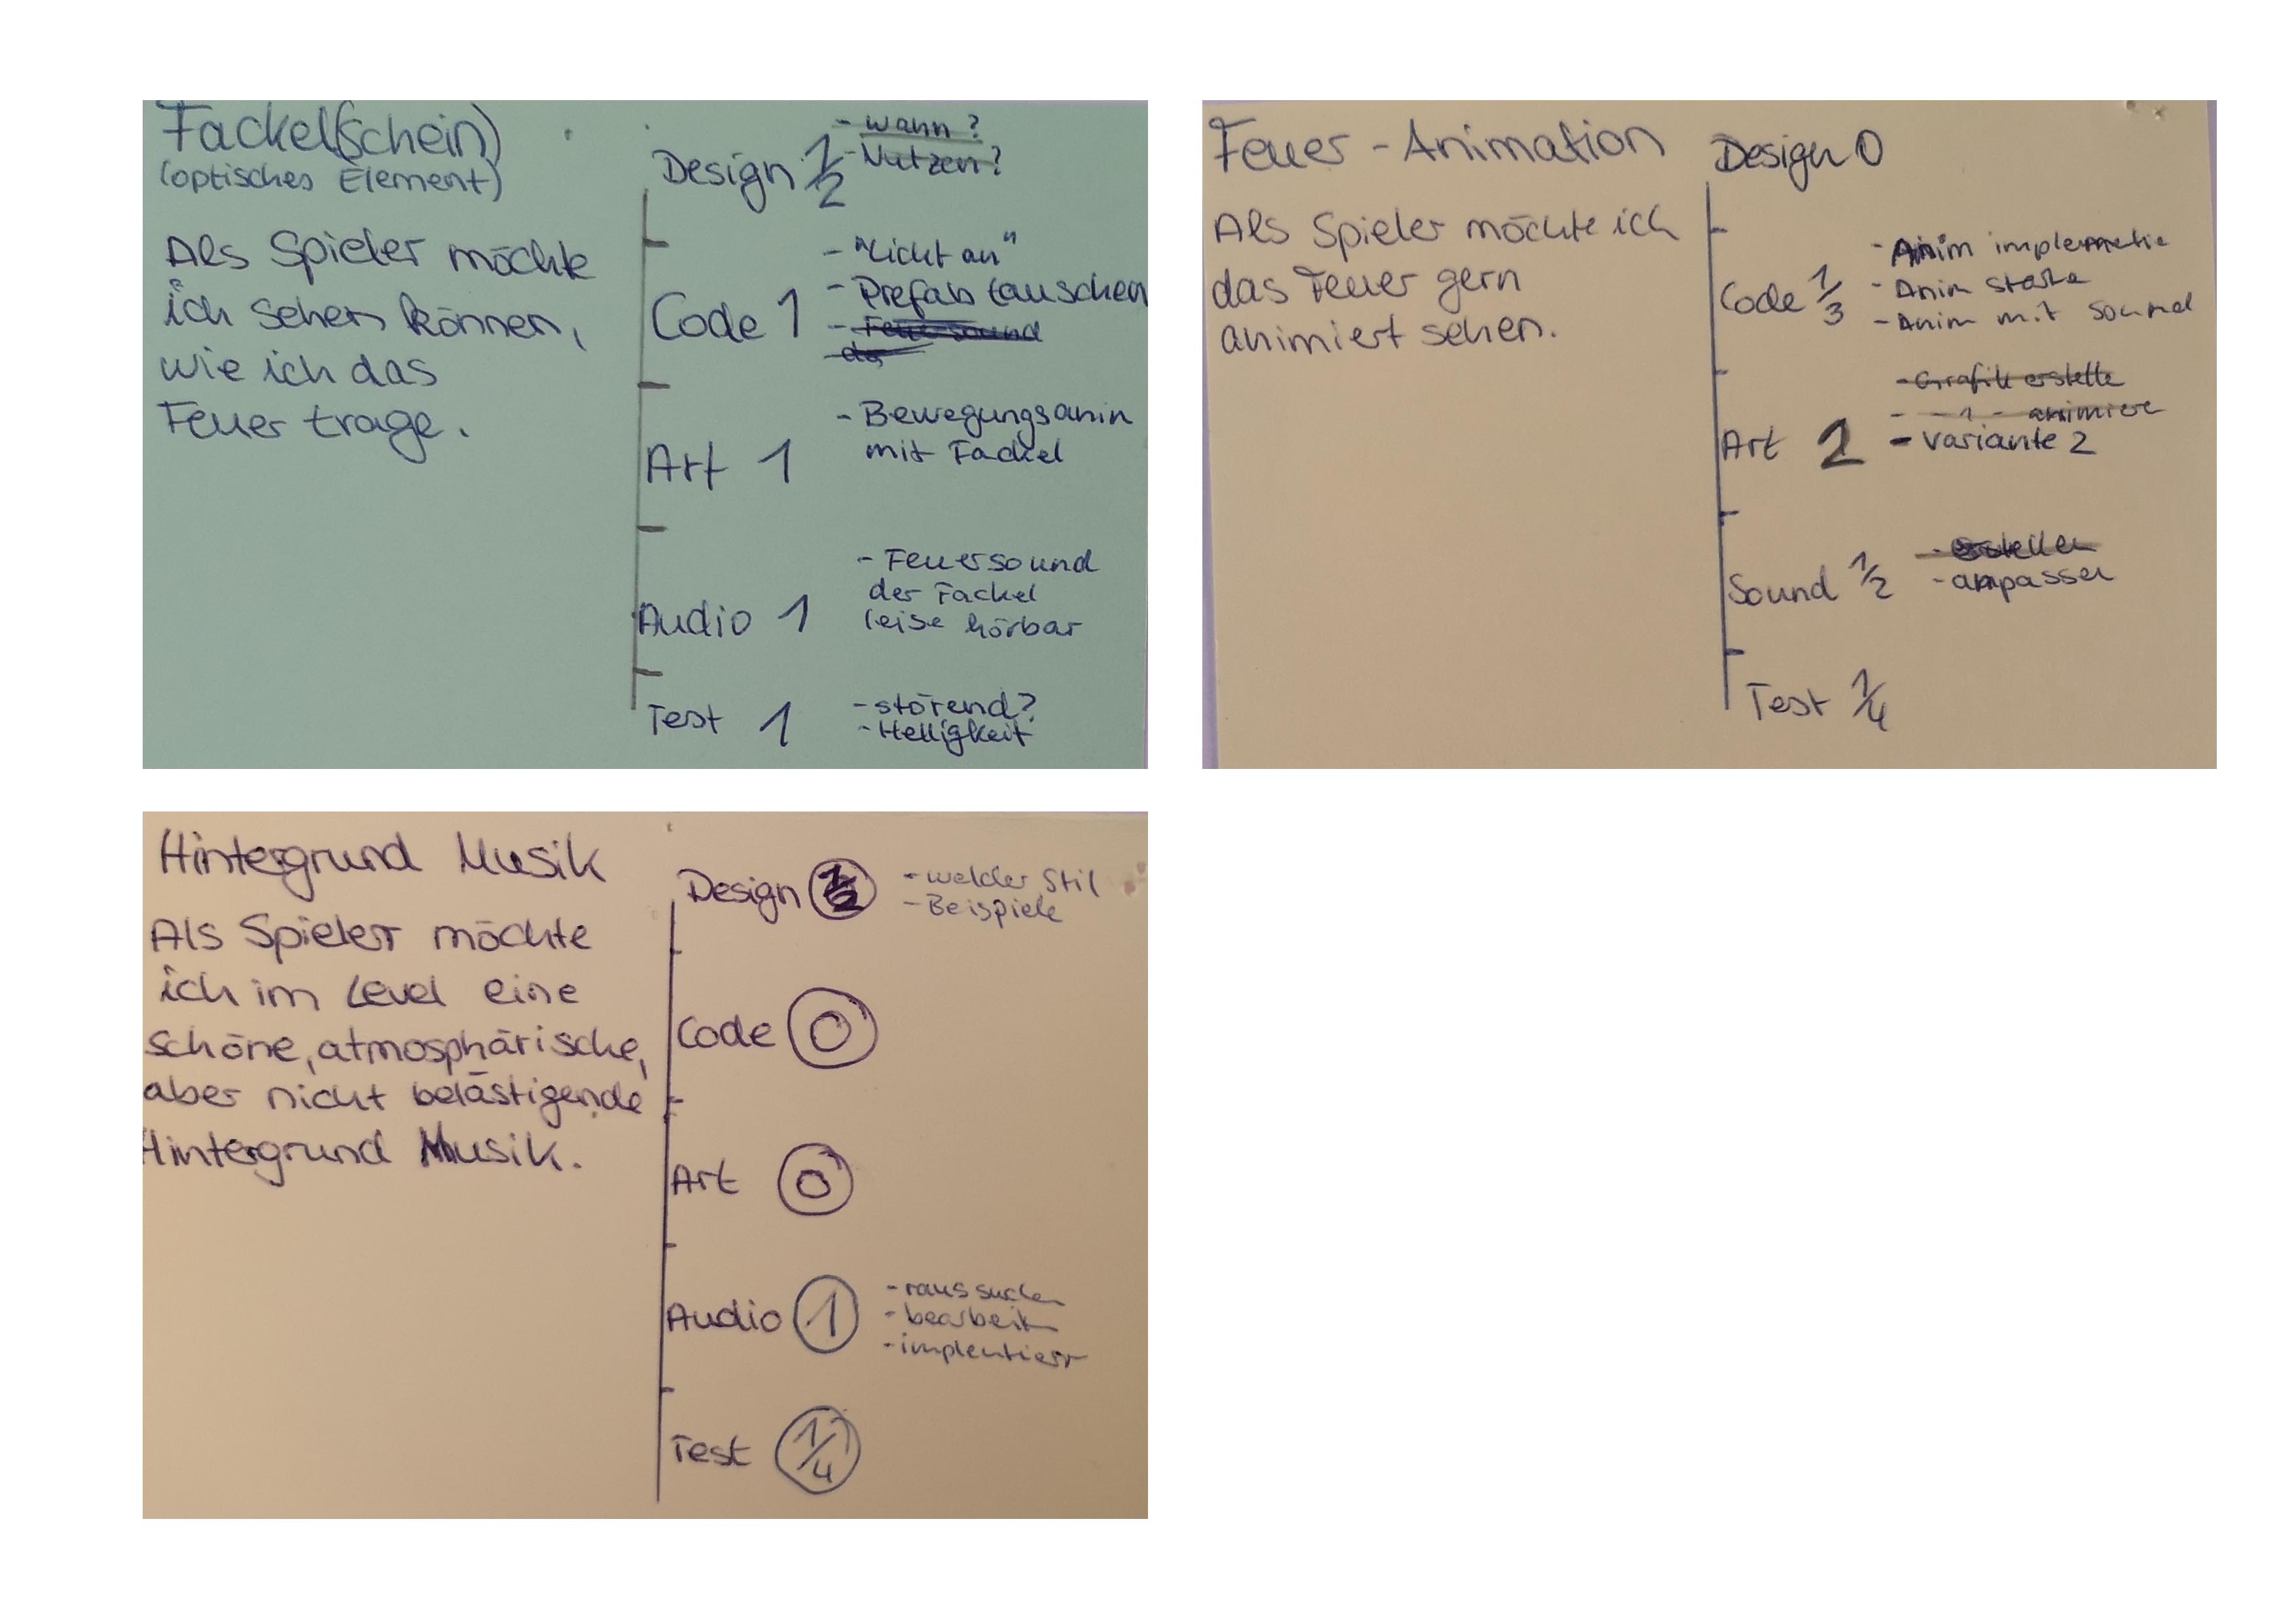 Fackel(schein)
(optisches Element)
Als Spieler möchte
ich sehen können,
wie ich das
Feuer trage.
Design 1/2
- wann?
- Nutzen?
Code 1
- "Licht an"
- Prefab tauschen
- Feuersound
der
Art 1
- Bewegungsanim
mit Fackel
Audio 1
- Feuersound
der Fackel
leise hörbar
Test 1
- störend?
- Helligkeit
Feuer - Animation
Als Spieler möchte ich
das Feuer gern
animiert sehen.
Design 0
Code 1/3
- Anim
- Anim
- Anim mit Sound
Art 2
- Grafik erstelle
- - " - animiere
- Variante 2
Sound 1/2
- erstellen
- anpassen
Test 1/4
Hintergrund Musik
Als Spieler möchte
ich im Level eine
schöne, atmosphärische,
aber nicht belästigende
Hintergrund Musik.
Design
- welcher Stil
- Beispiele
Code 0
Art 0
Audio 1
- raussuchen
- bearbeiten
- implentier
Test 1/4